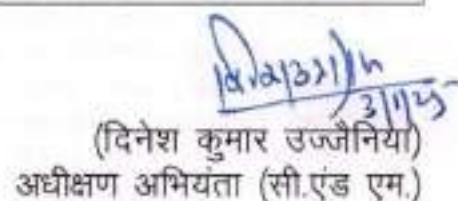 3/1/25
(दिनेश कुमार उज्जैनिया)
अधीक्षण अभियंता (सी.एंड एम.)